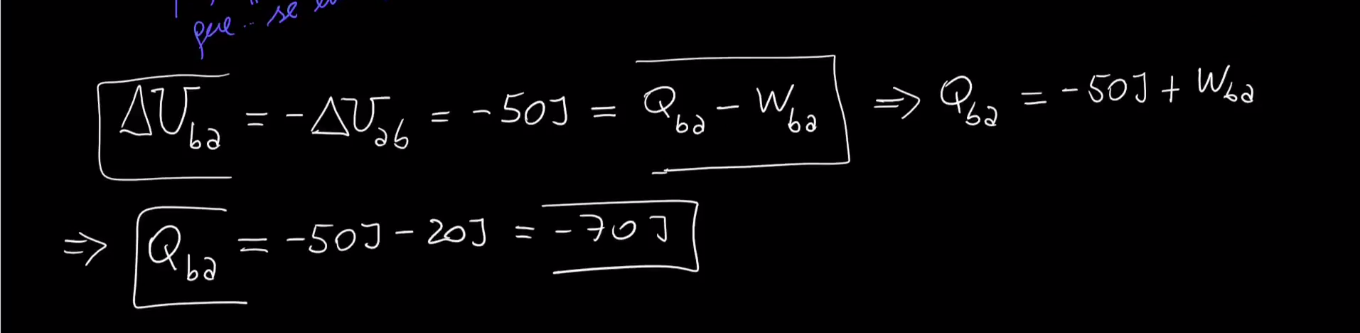 que se
ΔU_ba = -ΔU_ab = -50J = Q_ba - W_ba => Q_ba = -50J + W_ba
=> Q_ba = -50J - 20J = -70J